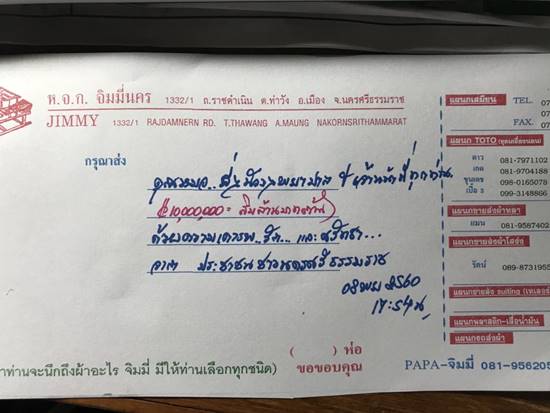 ห.จ.ก. จิมมี่นคร 1332/1 ถ.ราชดำเนิน ต.ท่าวัง อ.เมือง จ.นครศรีธรรมราช
JIMMY 1332/1 RAJDAMNERN RD. T.THAWANG A.MAUNG NAKORNSRITHAMMARAT
แผนกเสมียน TEL. 07
07
FAX. 07
แผนก TOTO (ชุดเครื่องนอน)
ดาว 081-7971102
เกต 081-9704188
ขุนเดช 098-0165078
เปี๊ยก 3 099-3148866
แผนกขายส่งผ้าหลา
แมน 081-9587402
แผนกขายส่งผ้าโสร่ง
รัตน์ 089-8731955
แผนกขายส่ง suiting (เทเลอร์
แผนกพลาสติก-เสื่อน้ำมัน
แผนกรถส่งผ้า
PAPA-จิมมี่ 081-956205
กรุณาส่ง
คุณหมอ.. โรงพยาบาล เจ้าหน้าที่ทุกท่าน
(10,000,000= สิบล้านบาทถ้วน)
ด้วยความเคารพ.. รัก... และศรัทธา...
จาก ประชาชนชาวนครศรีธรรมราช
08 พย 2560
17:54 น.
( ) ห่อ
ขอขอบคุณ
าท่านจะนึกถึงผ้าอะไร จิมมี่ มีให้ท่านเลือกทุกชนิด)